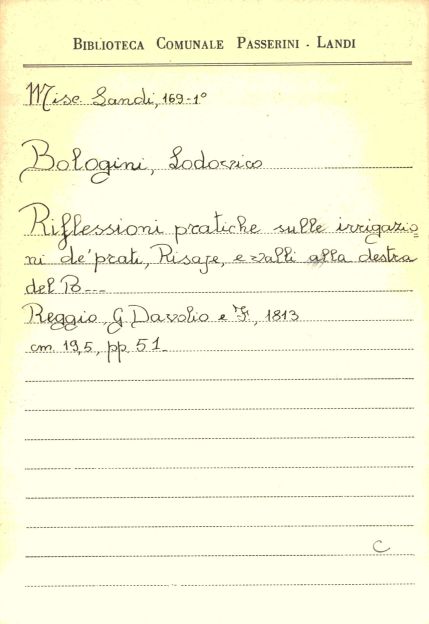 BIBLIOTECA COMUNALE PASSERINI - LANDI
Misc. Landi, 169-1°
Bologini, Lodovico
Riflessioni pratiche sulle irrigazio=
ni de' prati, Risaje, e valli alla destra
del Po---
Reggio, G. Davolio e F., 1813
cm. 19,5, pp. 51_
C